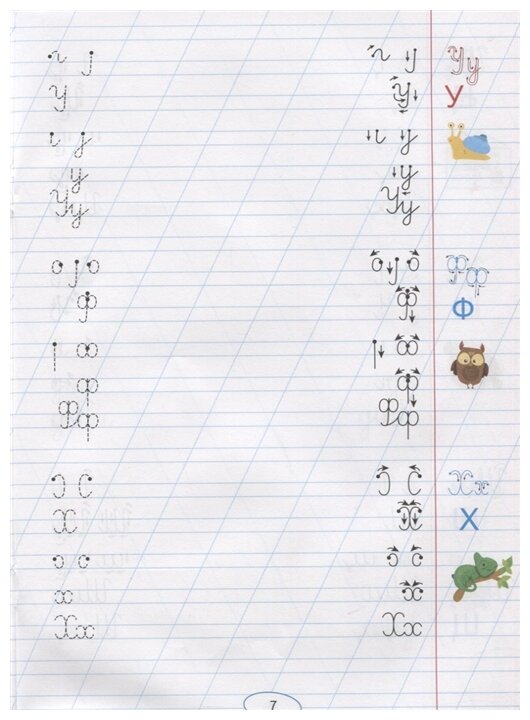 Уу
У У У
у у
Уу Уу
Фф
Ф Ф Ф
ф ф
Фф Фф
Хх
Х Х Х
х х
Хх Хх
7